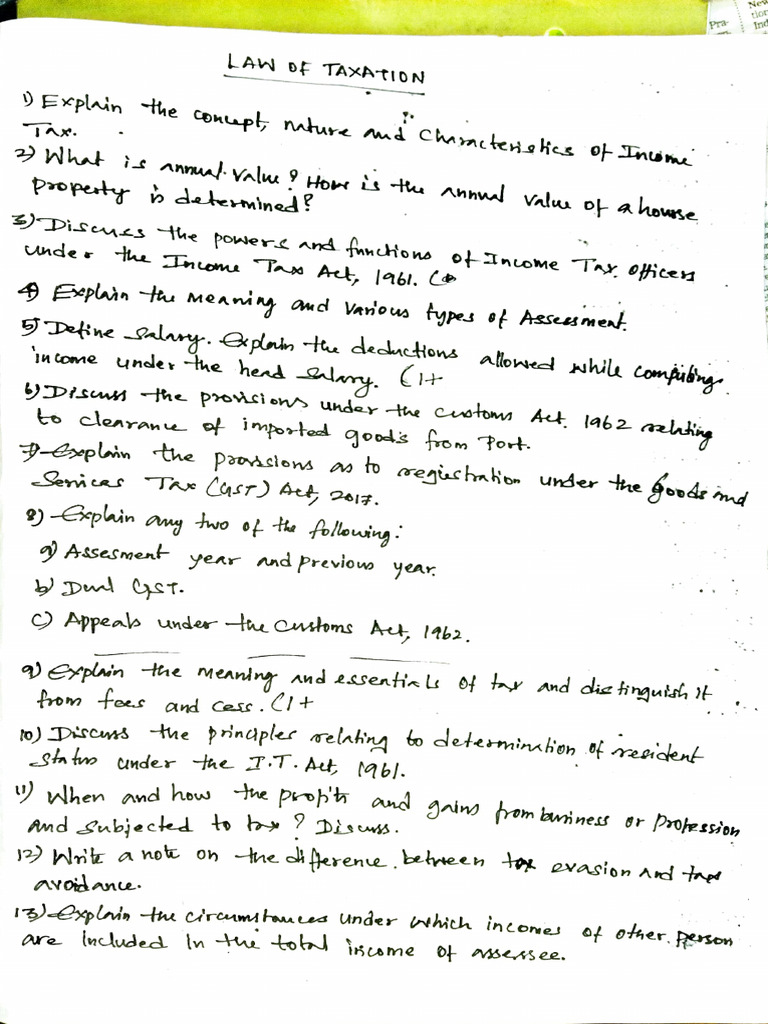 New
Pra-
tion
Ind
LAW OF TAXATION
1) Explain the concept, nature and Characteristics of Income
Tax.
2) What is annual value? How is the annual value of a house
property is determined?
3) Discuss the powers and functions of Income Tax officers
under the Income Tax Act, 1961. (
4) Explain the Meaning and various types of Assessment.
5) Define Salary. Explain the deductions allowed while computing
income under the head Salary. (1+
6) Discuss the provisions under the customs Act. 1962 relating
to clearance of imported goods from Port.
7) Explain the provisions as to registration under the Goods and
Services Tax (GST) Act, 2017.
8) Explain any two of the following:
a) Assesment year and previous year.
b) Dual GST.
c) Appeals under the Customs Act, 1962.
9) Explain the Meaning and essentials of tax and distinguish it
from fees and cess. (1+
10) Discuss the principles relating to determination of resident
Status under the I.T. Act, 1961.
11) When and how the profits and gains from business or Profession
and Subjected to tax? Discuss.
12) Write a note on the difference between tax evasion and tax
avoidance.
13) Explain the circumstances under which incomes of other person
are included in the total income of assessee.